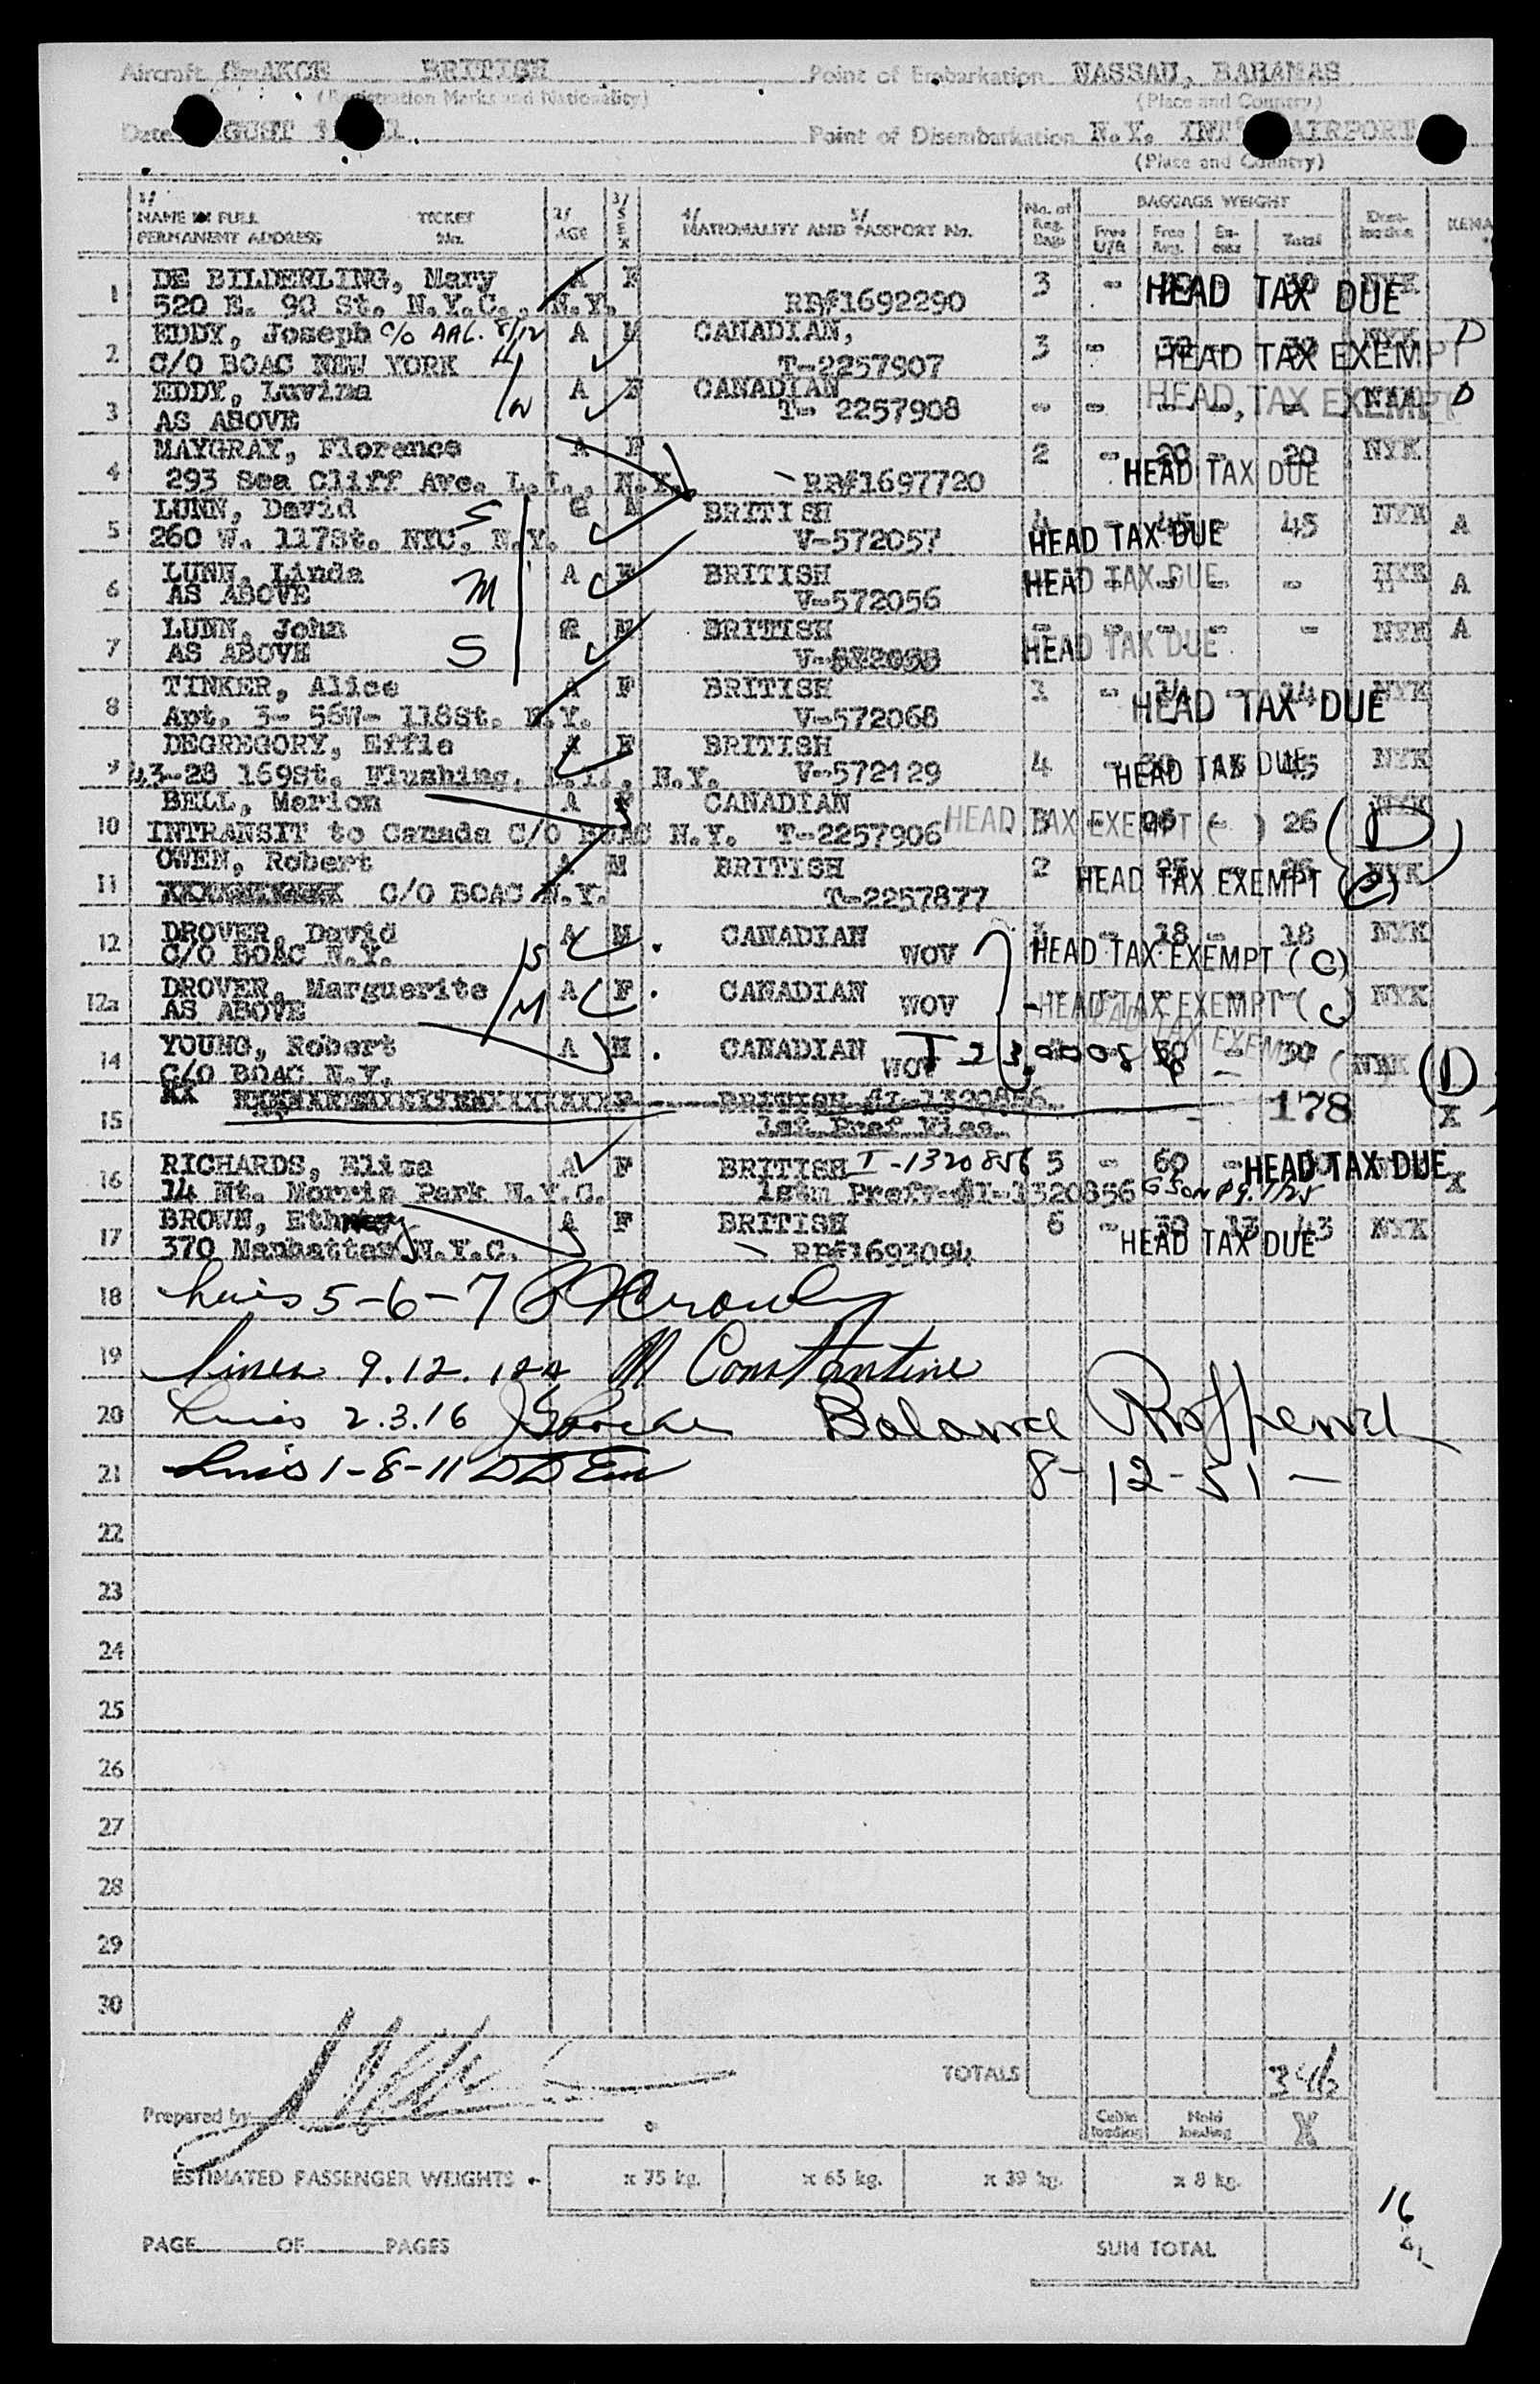 Aircraft G-AKCN BRITISH Point of Embarkation NASSAU, BAHAMAS
(Registration Marks and Nationality) (Place and Country)
Date GUST Point of Disembarkation N.Y. INT' AIRPORT
(Place and Country)
1/ NAME IN FULL TICKET 2/ 3/ SEX 4/ 5/ No. of BAGGAGE WEIGHT
PERMANENT ADDRESS No. AGE NATIONALITY AND PASSPORT No. Reg. Bags Free U/A Free Reg. Ex-cess Total Dest-ination REMA
1 DE BILDERLING, Mary A F 3 - HEAD TAX DUE NYK
520 E. 90 St. N.Y.C., N.Y. RP#1692290
2 EDDY, Joseph C/O AAL. 8/12 A M CANADIAN, 3 - HEAD TAX EXEMPT NYK D
C/O BOAC NEW YORK H T-2257907
3 EDDY, Luvina W A F CANADIAN - - HEAD, TAX EXEMPT D
AS ABOVE T- 2257908
4 MAYGRAY, Florence A F 2 - 20 - 20 NYK
293 Sea Cliff Ave. L.I., N.Y. RP#1697720 HEAD TAX DUE
5 LUNN, David S C M BRITISH 4 - 45 - 45 NYK A
260 W. 117St. NYC, N.Y. V-572057 HEAD TAX DUE
6 LUNN, Linda M A F BRITISH HEAD TAX DUE - NYK A
AS ABOVE V-572056
7 LUNN, John S C M BRITISH - - - - - NYK A
AS ABOVE HEAD TAX DUE
8 TINKER, Alice A F BRITISH 1 - 24 - 24 NYK
Apt. 3- 56W- 118St. N.Y. V-572068 HEAD TAX DUE
9 DEGREGORY, Effie A F BRITISH 4 - 45 NYK
43-28 169St. Flushing, L.I., N.Y. V-572129 HEAD TAX DUE
10 BELL, Marion A F CANADIAN 3 - 26 - 26 NYK (D)
INTRANSIT to Canada C/O BOAC N.Y. T-2257906 HEAD TAX EXEMPT ( )
11 OWEN, Robert A M BRITISH 2 NYK
C/O BOAC N.Y. T-2257877 HEAD TAX EXEMPT (C)
12 DROVER, David S A M CANADIAN 1 - 18 - 18 NYK
C/O BOAC N.Y. WOV HEAD TAX EXEMPT (C)
12a DROVER, Marguerite M A F CANADIAN NYK
AS ABOVE WOV HEAD TAX EXEMPT (C)
HEAD TAX EXEMPT
14 YOUNG, Robert A M CANADIAN T 230008 30 - 30 NYK (D)
C/O BOAC N.Y. WOV
15 F BRITISH #I-1320856 178 X
1st Pref Visa
16 RICHARDS, Eliza A F BRITISH I-1320856 5 - 60 - HEAD TAX DUE X
14 Mt. Morris Park N.Y.C. I-1320856
17 BROWN, A F BRITISH 6 - 30 13 43 NYK
370 Manhattan N.Y.C. RP#1693094 HEAD TAX DUE
18 5-6-7
19 Lines 9.12. 12a M Constantine
20 2.3.16 Balance
21 1-8-11 8-12-51-
22
23
24
25
26
27
28
29
30
TOTALS 346
Prepared by Cabin loading Hold loading X
ESTIMATED PASSENGER WEIGHTS - x 75 kg. x 65 kg. x 39 kg. x 8 kg.
16
PAGE OF PAGES SUM TOTAL